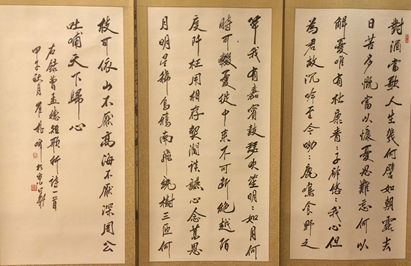 對酒當歌人生幾何譬如朝露去
日苦多慨當以慷憂思難忘何以
解憂唯有杜康青々子衿悠々我心但
為君故沉吟至今呦々鹿鳴食野之
苹我有嘉賓鼓瑟吹笙明々如月何
時可掇憂從中來不可斷絕越陌
度阡枉用相存契闊談讌心念舊恩
月明星稀烏鵲南飛繞樹三匝何
枝可依山不厭高海不厭深周公
吐哺天下歸心
右錄曹孟德短歌行詩一首
秋月